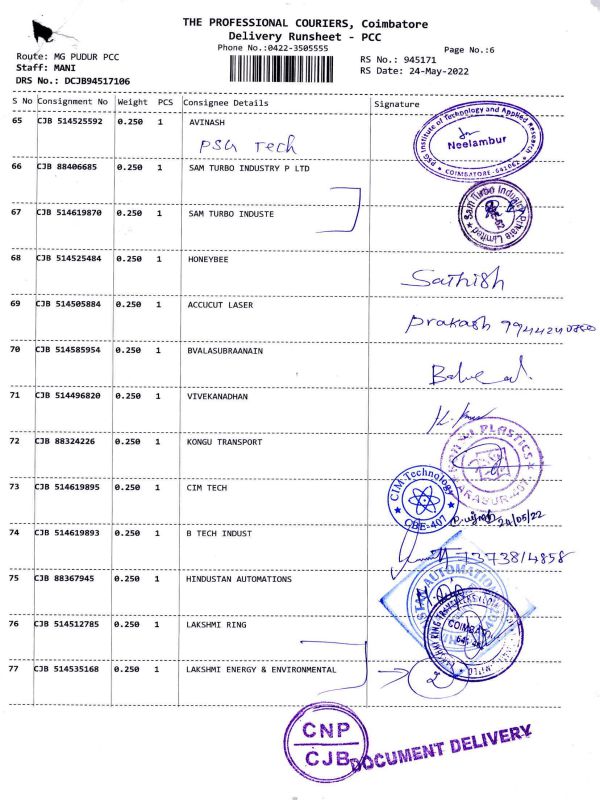 THE PROFESSIONAL COURIERS, Coimbatore
Delivery Runsheet - PCC
Phone No.:0422-3505555
Page No.:6
Route: MG PUDUR PCC
Staff: MANI
DRS No.: DCJB94517106
RS No.: 945171
RS Date: 24-May-2022
S No Consignment No Weight PCS Consignee Details Signature
65 CJB 514525592 0.250 1 AVINASH
PSG Tech
PSG Institute of Technology and Applied Research
Neelambur
COIMBATORE-641062
66 CJB 88406685 0.250 1 SAM TURBO INDUSTRY P LTD
67 CJB 514619870 0.250 1 SAM TURBO INDUSTE
Sam Turbo Industry Private Limited
68 CJB 514525484 0.250 1 HONEYBEE
Sathish
69 CJB 514505884 0.250 1 ACCUCUT LASER
Prakash
70 CJB 514585954 0.250 1 BVALASUBRAANAIN
71 CJB 514496820 0.250 1 VIVEKANADHAN
72 CJB 88324226 0.250 1 KONGU TRANSPORT
PLASTICS
ARASUR-407
73 CJB 514619895 0.250 1 CIM TECH
CIM Technology
CBE-407
24/05/22
74 CJB 514619893 0.250 1 B TECH INDUST
13738/4858
75 CJB 88367945 0.250 1 HINDUSTAN AUTOMATIONS
76 CJB 514512785 0.250 1 LAKSHMI RING
77 CJB 514535168 0.250 1 LAKSHMI ENERGY & ENVIRONMENTAL
2
CNP
CJB
DOCUMENT DELIVERY